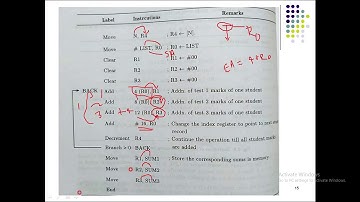 Label Instructions Remarks
Move N, R4 ; R4 ← [N]
Move # LIST, R0 ; R0 ← LIST
Clear R1 ; R1 ← #00
Clear R2 ; R2 ← #00
Clear R3 ; R3 ← #00
BACK : Add 4 (R0), R1 ; Addn. of test 1 marks of one student
Add 8 (R0), R2 ; Addn. of test 2 marks of one student
Add 12 (R0), R3 ; Addn. of test 3 marks of one student
Add # 16, R0 ; Change the index register to point to next
record
Decrement R4 ; Continue the operation till all student marks
Branch > 0 BACK are added
Move R1, SUM1 ; Store the corresponding sums in memory
Move R2, SUM2
Move R3, SUM3
End
R0
EA = 4+R0
Activate Windows
15